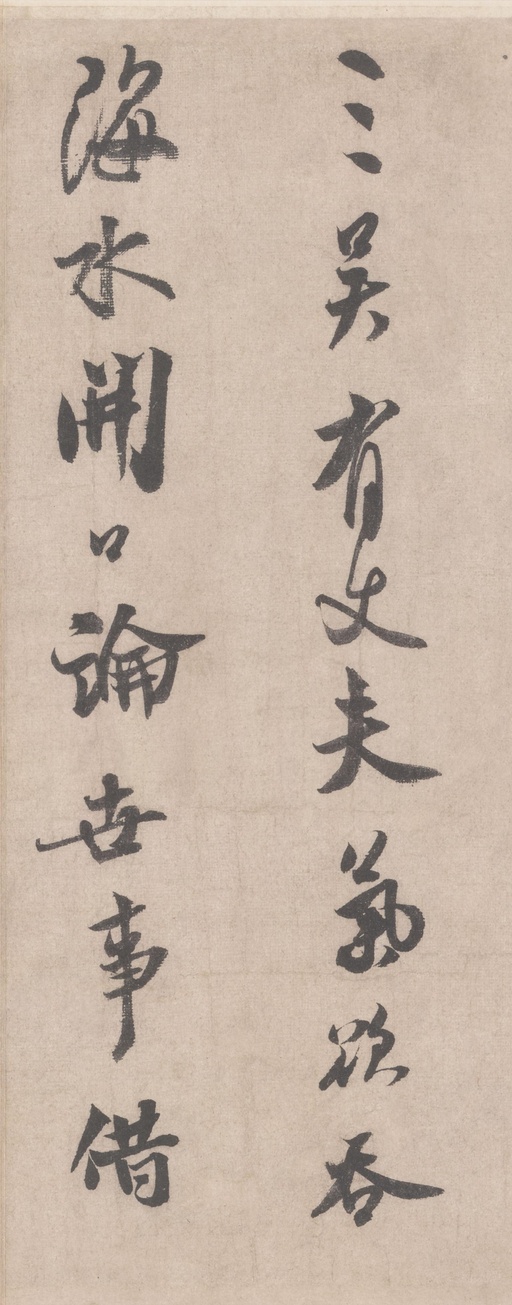 三吳有丈夫氣欲吞
海水開口論世事借